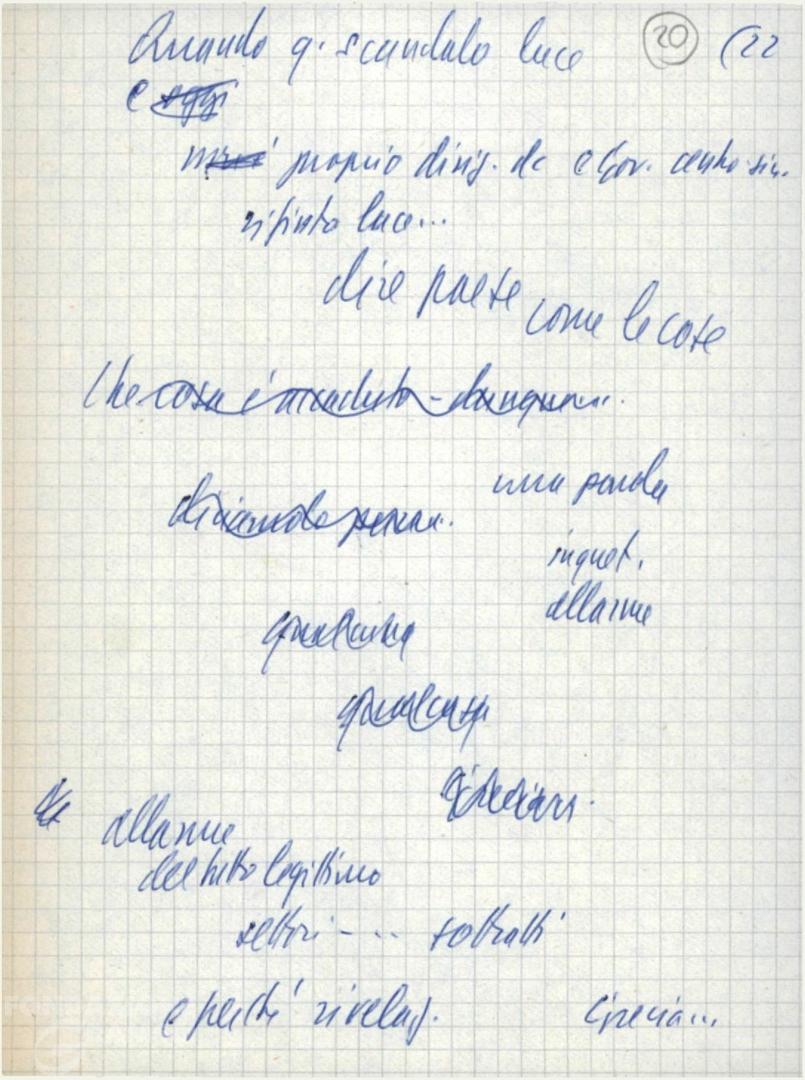 Quando q. scandalo luce 20 (22
e oggi
proprio dirig. dc e Gov. centro-sin.
rifiuto luce...
dire paese come le cose
Che cosa è accaduto - dunque...
diciamolo
una parola
inquet.
allarme
qualcuno
qualcosa
allarme
del tutto legittimo
settori - .. sottratti
e perché rivelaz. Grecia...